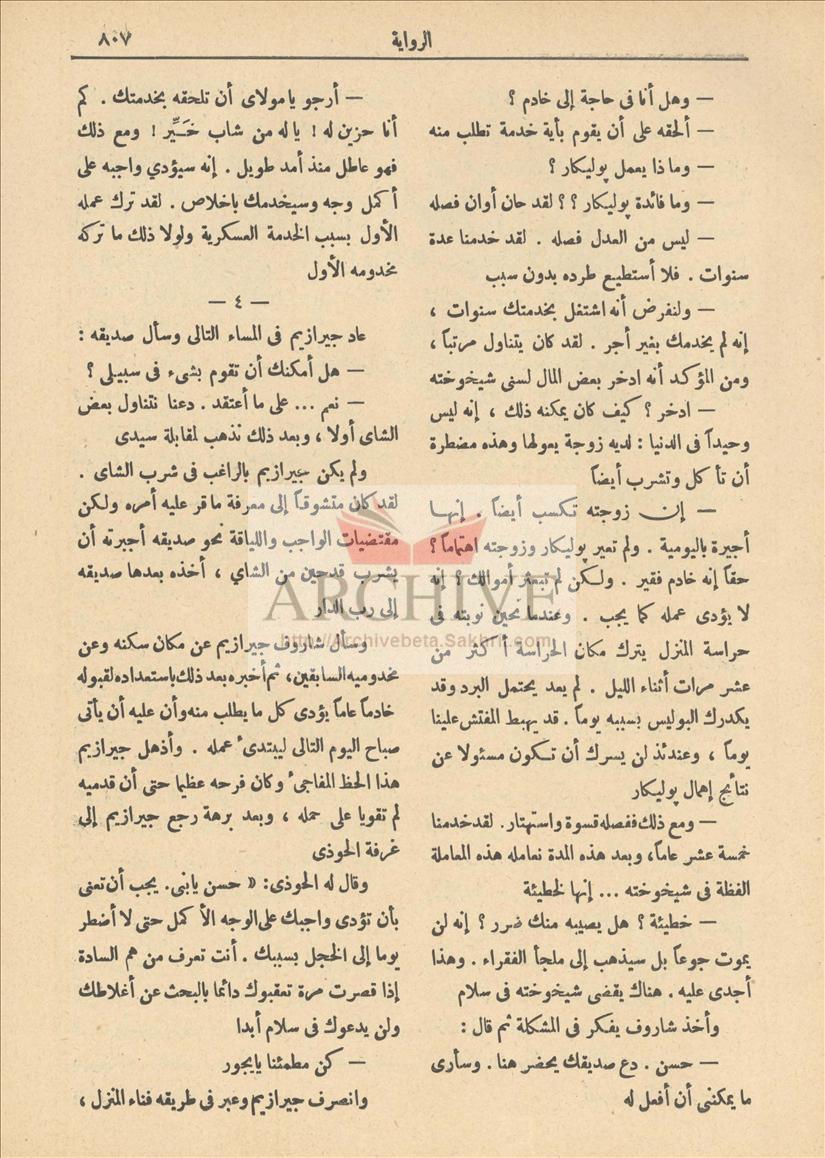 الرواية
٨٠٧
— وهل أنا فى حاجة إلى خادم ؟
— ألحقه على أن يقوم بأية خدمة تطلب منه
— وماذا يعمل پوليكار ؟
— وما فائدة پوليكار ؟ ؟ لقد حان أوان فصله
— ليس من العدل فصله . لقد خدمنا عدة
سنوات . فلا أستطيع طرده بدون سبب
— ولنفرض أنه اشتغل بخدمتك سنوات ،
إنه لم يخدمك بغير أجر . لقد كان يتناول مرتباً ،
ومن المؤكد أنه ادخر بعض المال لسنى شيخوخته
— ادخر ؟ كيف كان يمكنه ذلك ، إنه ليس
وحيداً فى الدنيا : لديه زوجة يعولها وهذه مضطرة
أن تأكل وتشرب أيضاً
— إن زوجته تكسب أيضاً . إنها
أجيرة باليومية . ولم تعير پوليكار وزوجته اهتماماً ؟
حقاً إنه خادم فقير . ولكن لم تبعثر أموالك ؟ إنه
لا يؤدى عمله كما يجب . وعندما تحين نوبته فى
حراسة المنزل يترك مكان الحراسة أكثر من
عشر مرات أثناء الليل . لم يعد يحتمل البرد وقد
يكدرك البوليس بسببه يوماً . قد يهبط المفتش علينا
يوماً ، وعندئذ لن يسرك أن تكون مسئولا عن
نتائج إهمال پوليكار
— ومع ذلك ففصله قسوة واستهتار . لقد خدمنا
خمسة عشر عاماً، وبعد هذه المدة نعامله هذه المعاملة
الفظة فى شيخوخته ... إنها لخطيئة
— خطيئة ؟ هل يصيبه منك ضرر ؟ إنه لن
يموت جوعاً بل سيذهب إلى ملجأ الفقراء . وهذا
أجدى عليه . هناك يقضى شيخوخته فى سلام
وأخذ شاروف يفكر فى المشكلة ثم قال :
— حسن . دع صديقك يحضر هنا . وسأرى
ما يمكننى أن أفعل له
— أرجو يا مولاى أن تلحقه بخدمتك . كم
أنا حزين له ! ياله من شاب خَيِّر ! ومع ذلك
فهو عاطل منذ أمد طويل . إنه سيؤدي واجبه على
أكمل وجه وسيخدمك باخلاص . لقد ترك عمله
الأول بسبب الخدمة العسكرية ولولا ذلك ما تركه
مخدومه الأول
— ٤ —
عاد جيرازيم فى المساء التالى وسأل صديقه :
— هل أمكنك أن تقوم بشىء فى سبيلى ؟
— نعم ... على ما أعتقد . دعنا نتناول بعض
الشاى أولا ، وبعد ذلك نذهب لمقابلة سيدى
ولم يكن جيرازيم بالراغب فى شرب الشاى .
لقد كان متشوقاً إلى معرفة ما قر عليه أمره ولكن
مقتضيات الواجب واللياقة نحو صديقه أجبرته أن
يشرب قدحين من الشاي ، أخذه بعدها صديقه
إلى رب الدار
وسأل شاروف جيرازيم عن مكان سكنه وعن
مخدوميه السابقين، ثم أخبره بعد ذلك باستعداده لقبوله
خادماً عاماً يؤدى كل ما يطلب منه وأن عليه أن يأتى
صباح اليوم التالى ليبتدىء عمله . وأذهل جيرازيم
هذا الحظ المفاجىء وكان فرحه عظيما حتى أن قدميه
لم تقويا على حمله ، وبعد برهة رجع جيرازيم إلى
غرفة الحوذى
وقال له الحوذى: « حسن يابنى. يجب أن تعنى
بأن تؤدى واجبك على الوجه الأكمل حتى لا أضطر
يوما إلى الخجل بسببك . أنت تعرف من هم السادة
إذا قصرت مرة تعقبوك دائما بالبحث عن أغلاطك
ولن يدعوك فى سلام أبدا
— كن مطمئنا يايجور
وانصرف جيرازيم وعبر فى طريقه فناء المنزل ،
ARCHIVE
http://Archivebeta.Sakhrit.com